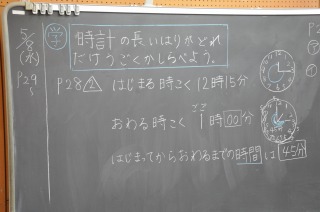 5/8
(水)
P29
学 時計の長いはりがどれ
だけうごくかしらべよう。
P28 2 はじまる時こく 12時15分
ここ
おわる時こく 1時00分
はじまってからおわるまでの時間は45分